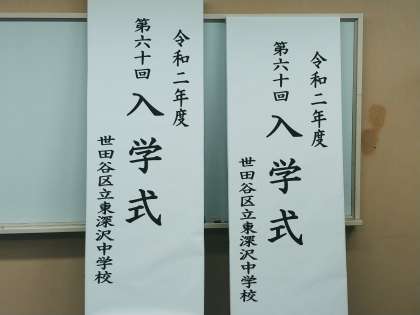 令和二年度
第六十回
入学式
世田谷区立東深沢中学校
令和二年度
第六十回
入学式
世田谷区立東深沢中学校